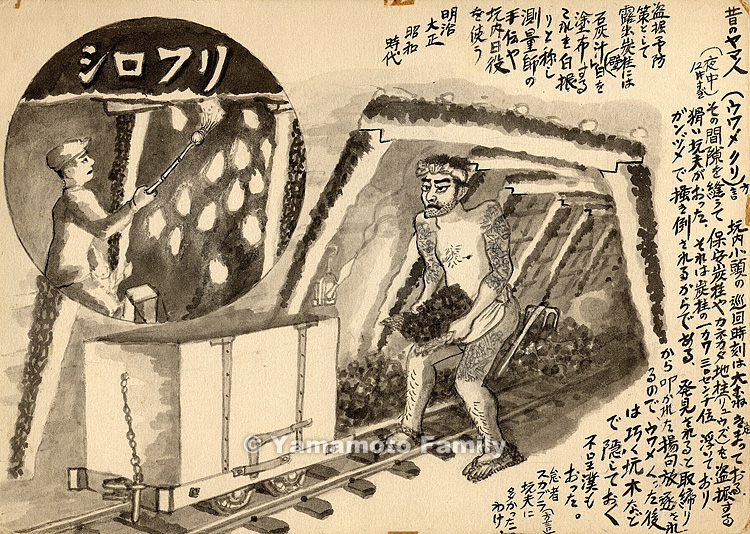 昔のヤマ人
(夜中
12時まで)
(ウワメクリ)方言 坑内小頭の巡回時刻は大むねきまっておる
その間隙を縫うて保安炭柱やカネカタ地柱(リュウズ)を盗掘する
猾い坑夫がおった、それは炭柱の一カワ三〇センチ位浮いており
ガンヅメで掻き倒されるからである、発見されると取締り
から叩かれた揚句放逐され
るので、ウワメクった後
は巧く坑木など
で隠しておく
不呈漢も
おった。
怠者(方言)
スカブラ
坑夫に
多かった
わけ
盗掘予防
策として
露出炭柱には
石灰汁(白壁)を
塗布する
これを白振
りと称し
測量師の
手伝や
坑内日役
を使う
明治
大正
昭和
時代
シロフリ
© Yamamoto Family